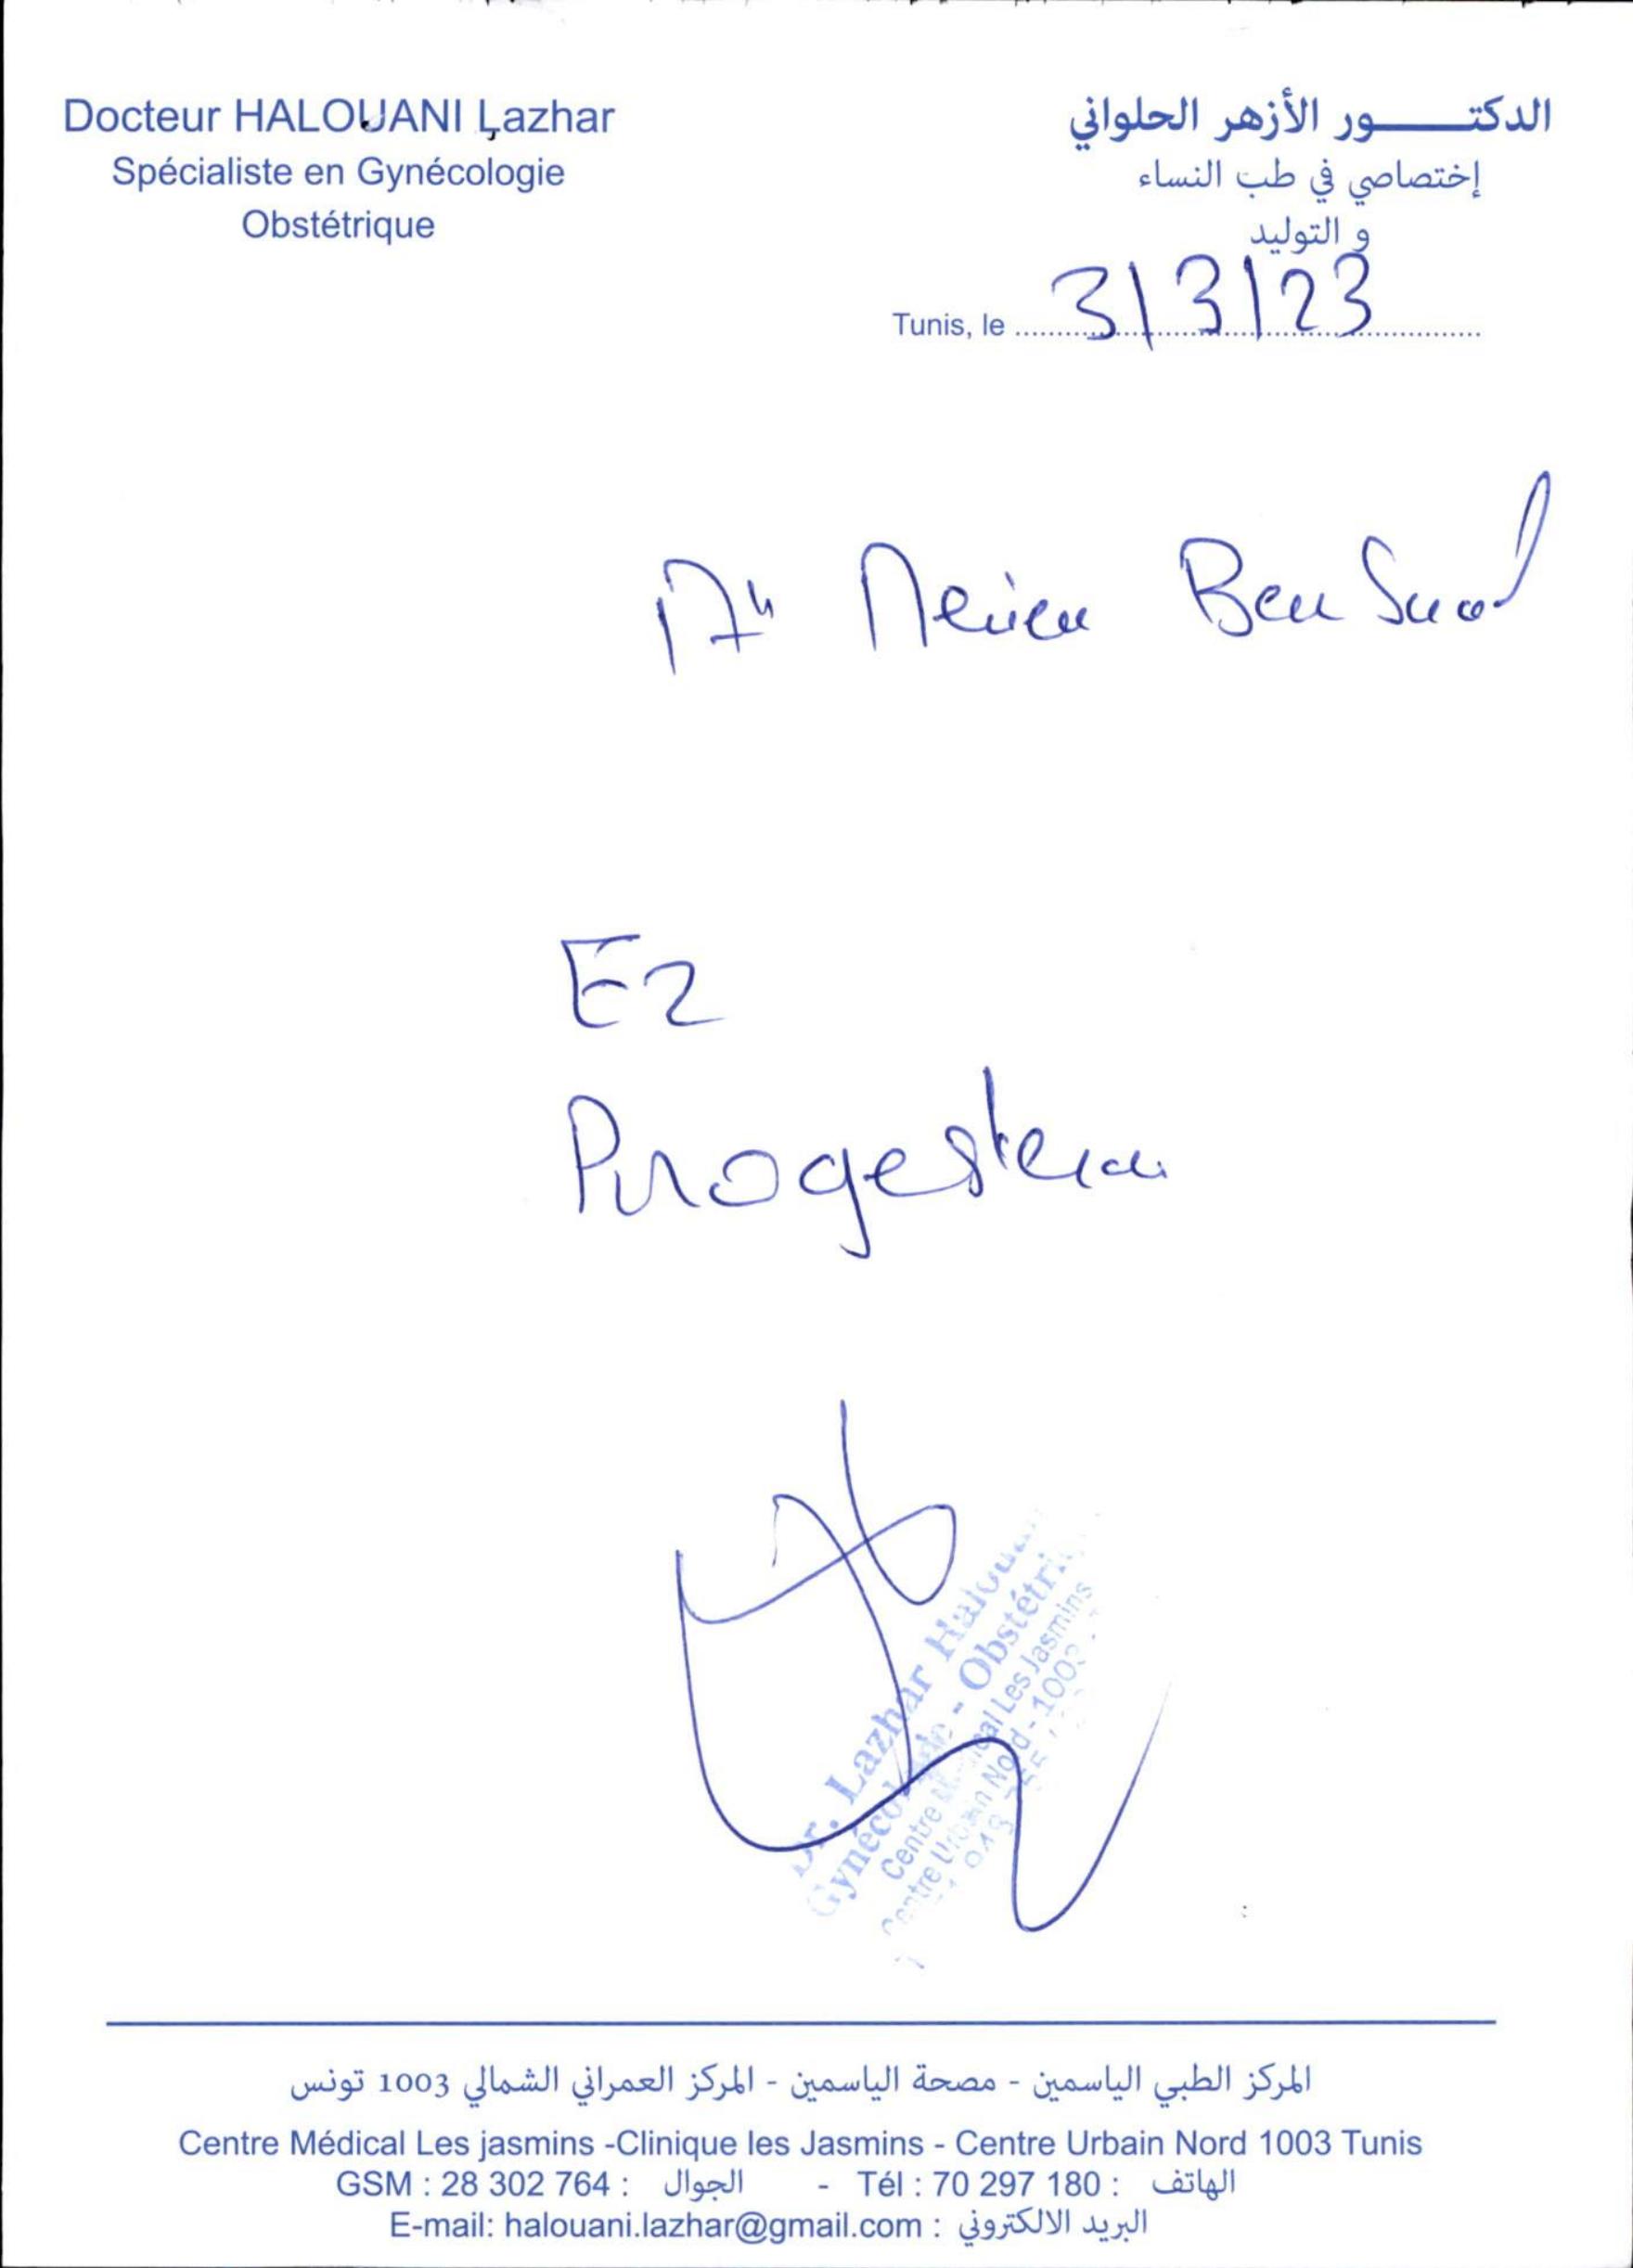 Docteur HALOUANI Lazhar
Spécialiste en Gynécologie
Obstétrique
الدكتـــــــور الأزهر الحلواني
إختصاصي في طب النساء
و التوليد
Tunis, le 3/3/23
Ben
E2
Dr. Lazhar
- Obstétri
Les Jasmins
المركز الطبي الياسمين - مصحة الياسمين - المركز العمراني الشمالي 1003 تونس
Centre Médical Les jasmins -Clinique les Jasmins - Centre Urbain Nord 1003 Tunis
GSM : 28 302 764 : الجوال - Tél : 70 297 180 : الهاتف
E-mail: halouani.lazhar@gmail.com : البريد الالكتروني